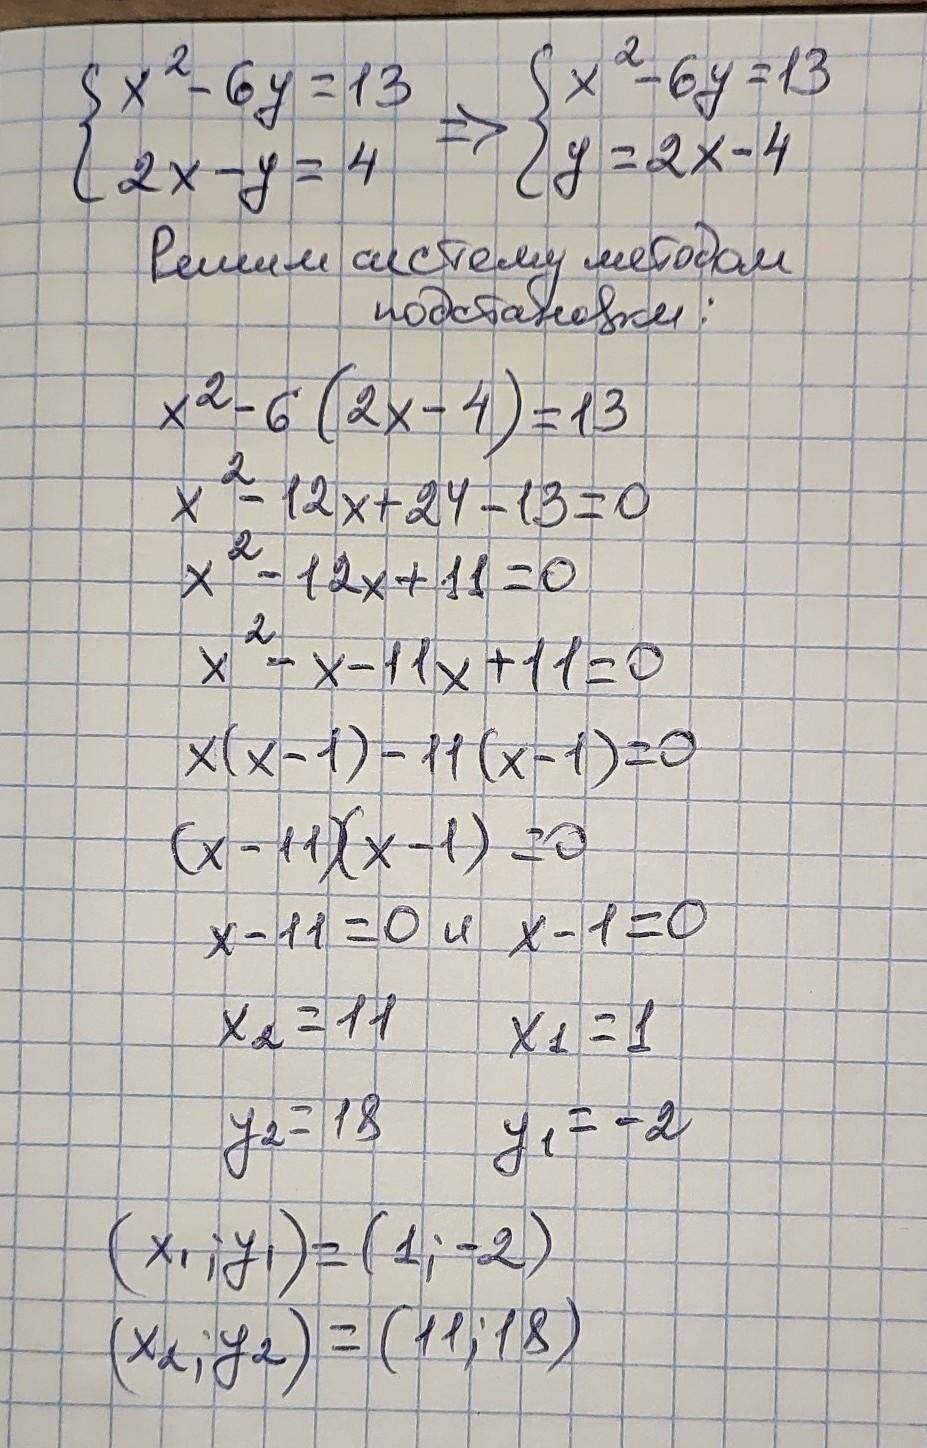 {x² - 6y = 13 => {x² - 6y = 13
{2x - y = 4 {y = 2x - 4
Решим систему методом
подстановки:
x² - 6(2x - 4) = 13
x² - 12x + 24 - 13 = 0
x² - 12x + 11 = 0
x² - x - 11x + 11 = 0
x(x - 1) - 11(x - 1) = 0
(x - 11)(x - 1) = 0
x - 11 = 0 и x - 1 = 0
x₂ = 11 x₁ = 1
y₂ = 18 y₁ = -2
(x₁; y₁) = (1; -2)
(x₂; y₂) = (11; 18)